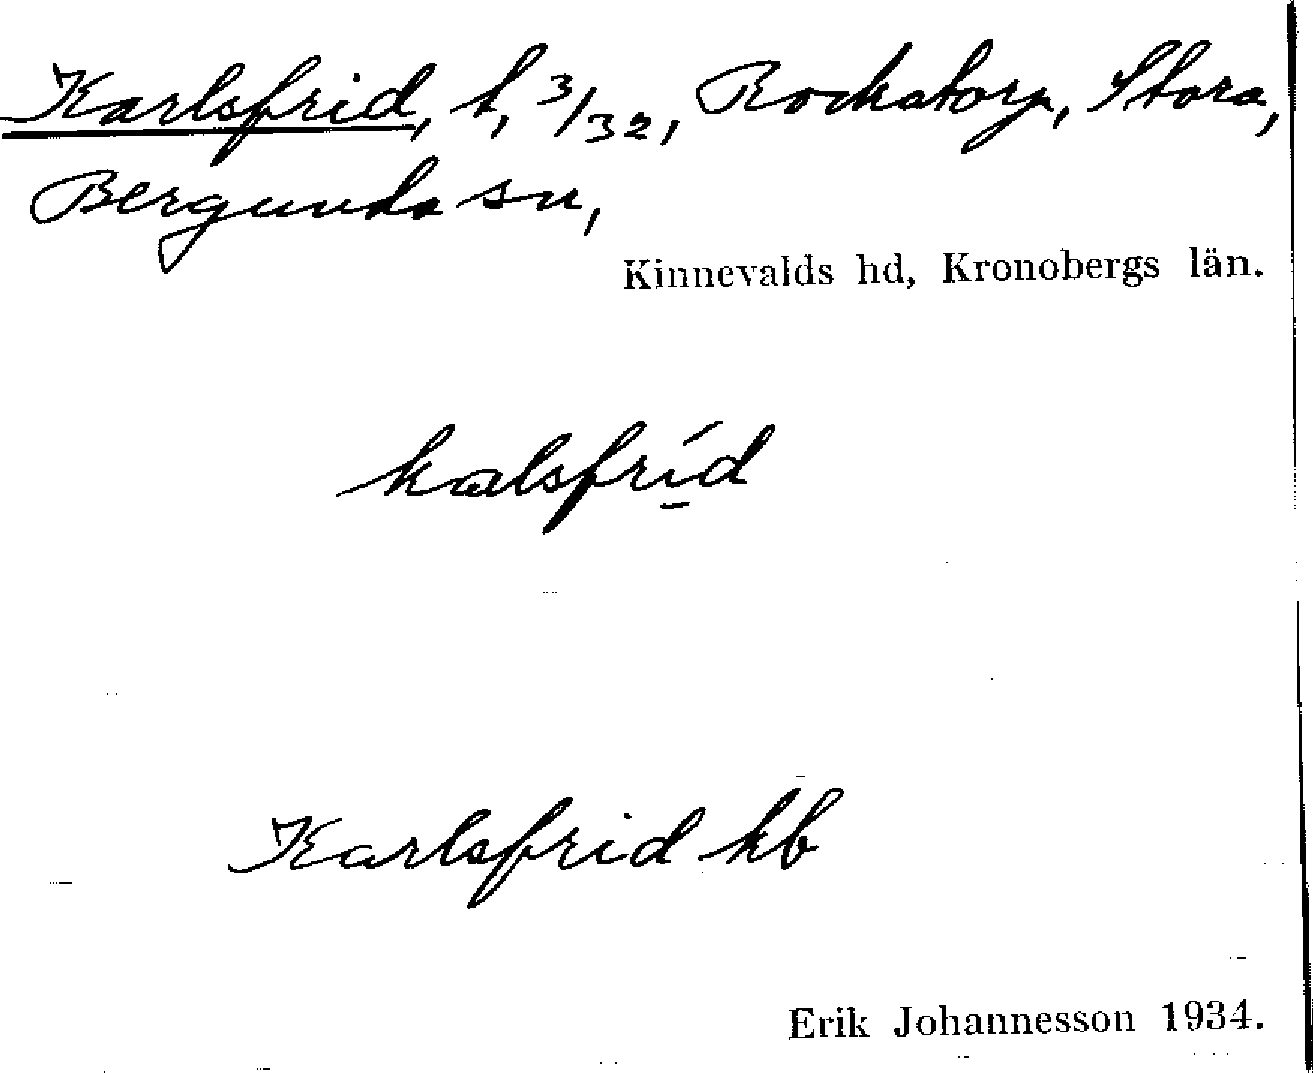 Karlsfrid, t, 3/32, Rockatorp, Stora,
Bergunda sn,
Kinnevalds hd, Kronobergs län.
kalsfríd
Karlsfrid kb
Erik Johannesson 1934.